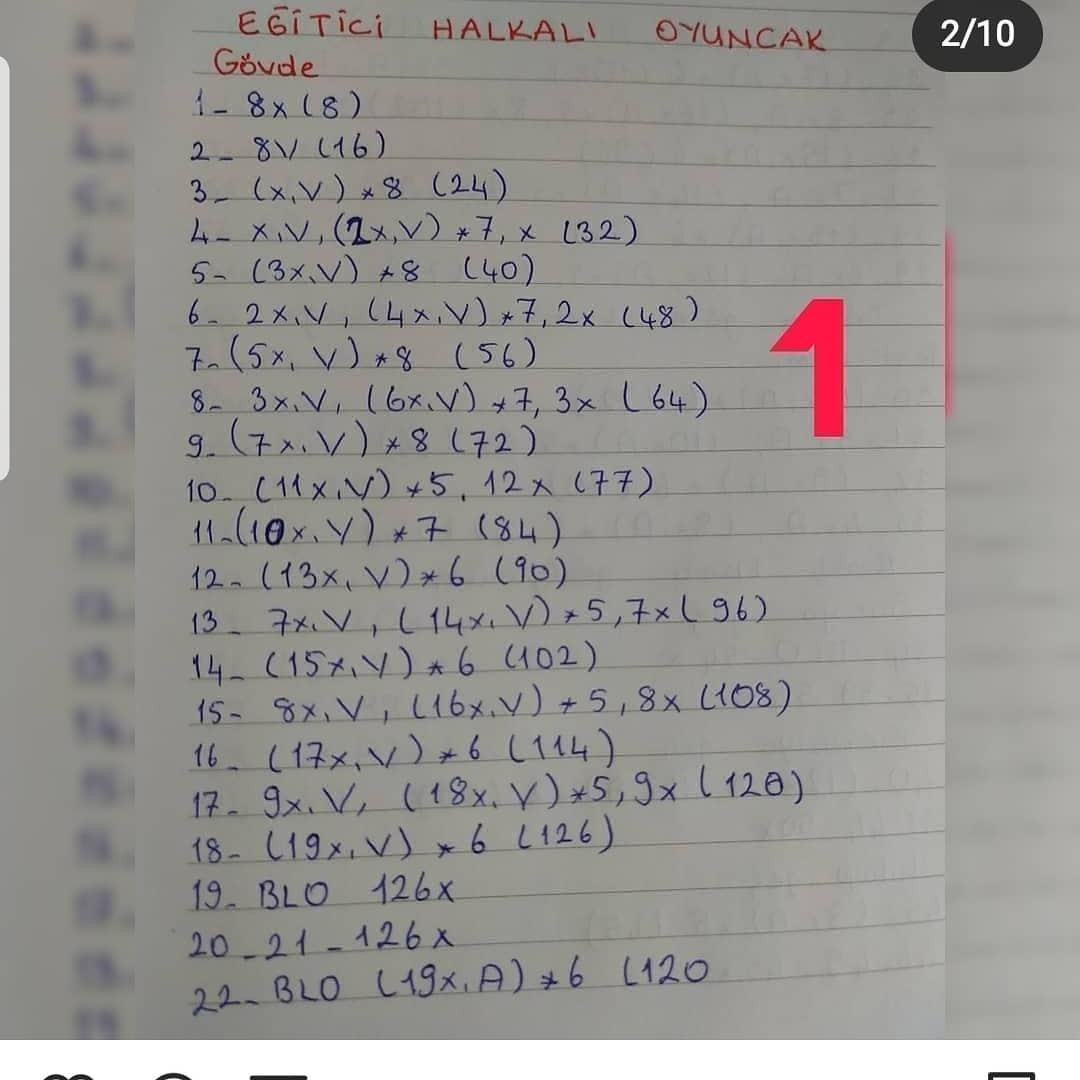 2/10
EĞİTİCİ HALKALI OYUNCAK
Gövde
1- 8x (8)
2- 8V (16)
3- (x,V) * 8 (24)
4- x,V, (2x,V) * 7, x (32)
5- (3x,V) * 8 (40)
6- 2x,V, (4x,V) * 7, 2x (48)
7- (5x, V) * 8 (56)
8- 3x,V, (6x,V) * 7, 3x (64)
9- (7x,V) * 8 (72)
10- (11x,V) * 5, 12x (77)
11- (10x,V) * 7 (84)
12- (13x, V) * 6 (90)
13- 7x,V, (14x,V) * 5, 7x (96)
14- (15x,V) * 6 (102)
15- 8x,V, (16x,V) * 5, 8x (108)
16- (17x,V) * 6 (114)
17- 9x,V, (18x,V) * 5, 9x (120)
18- (19x,V) * 6 (126)
19- BLO 126x
20-21- 126x
22- BLO (19x,A) * 6 (120
1